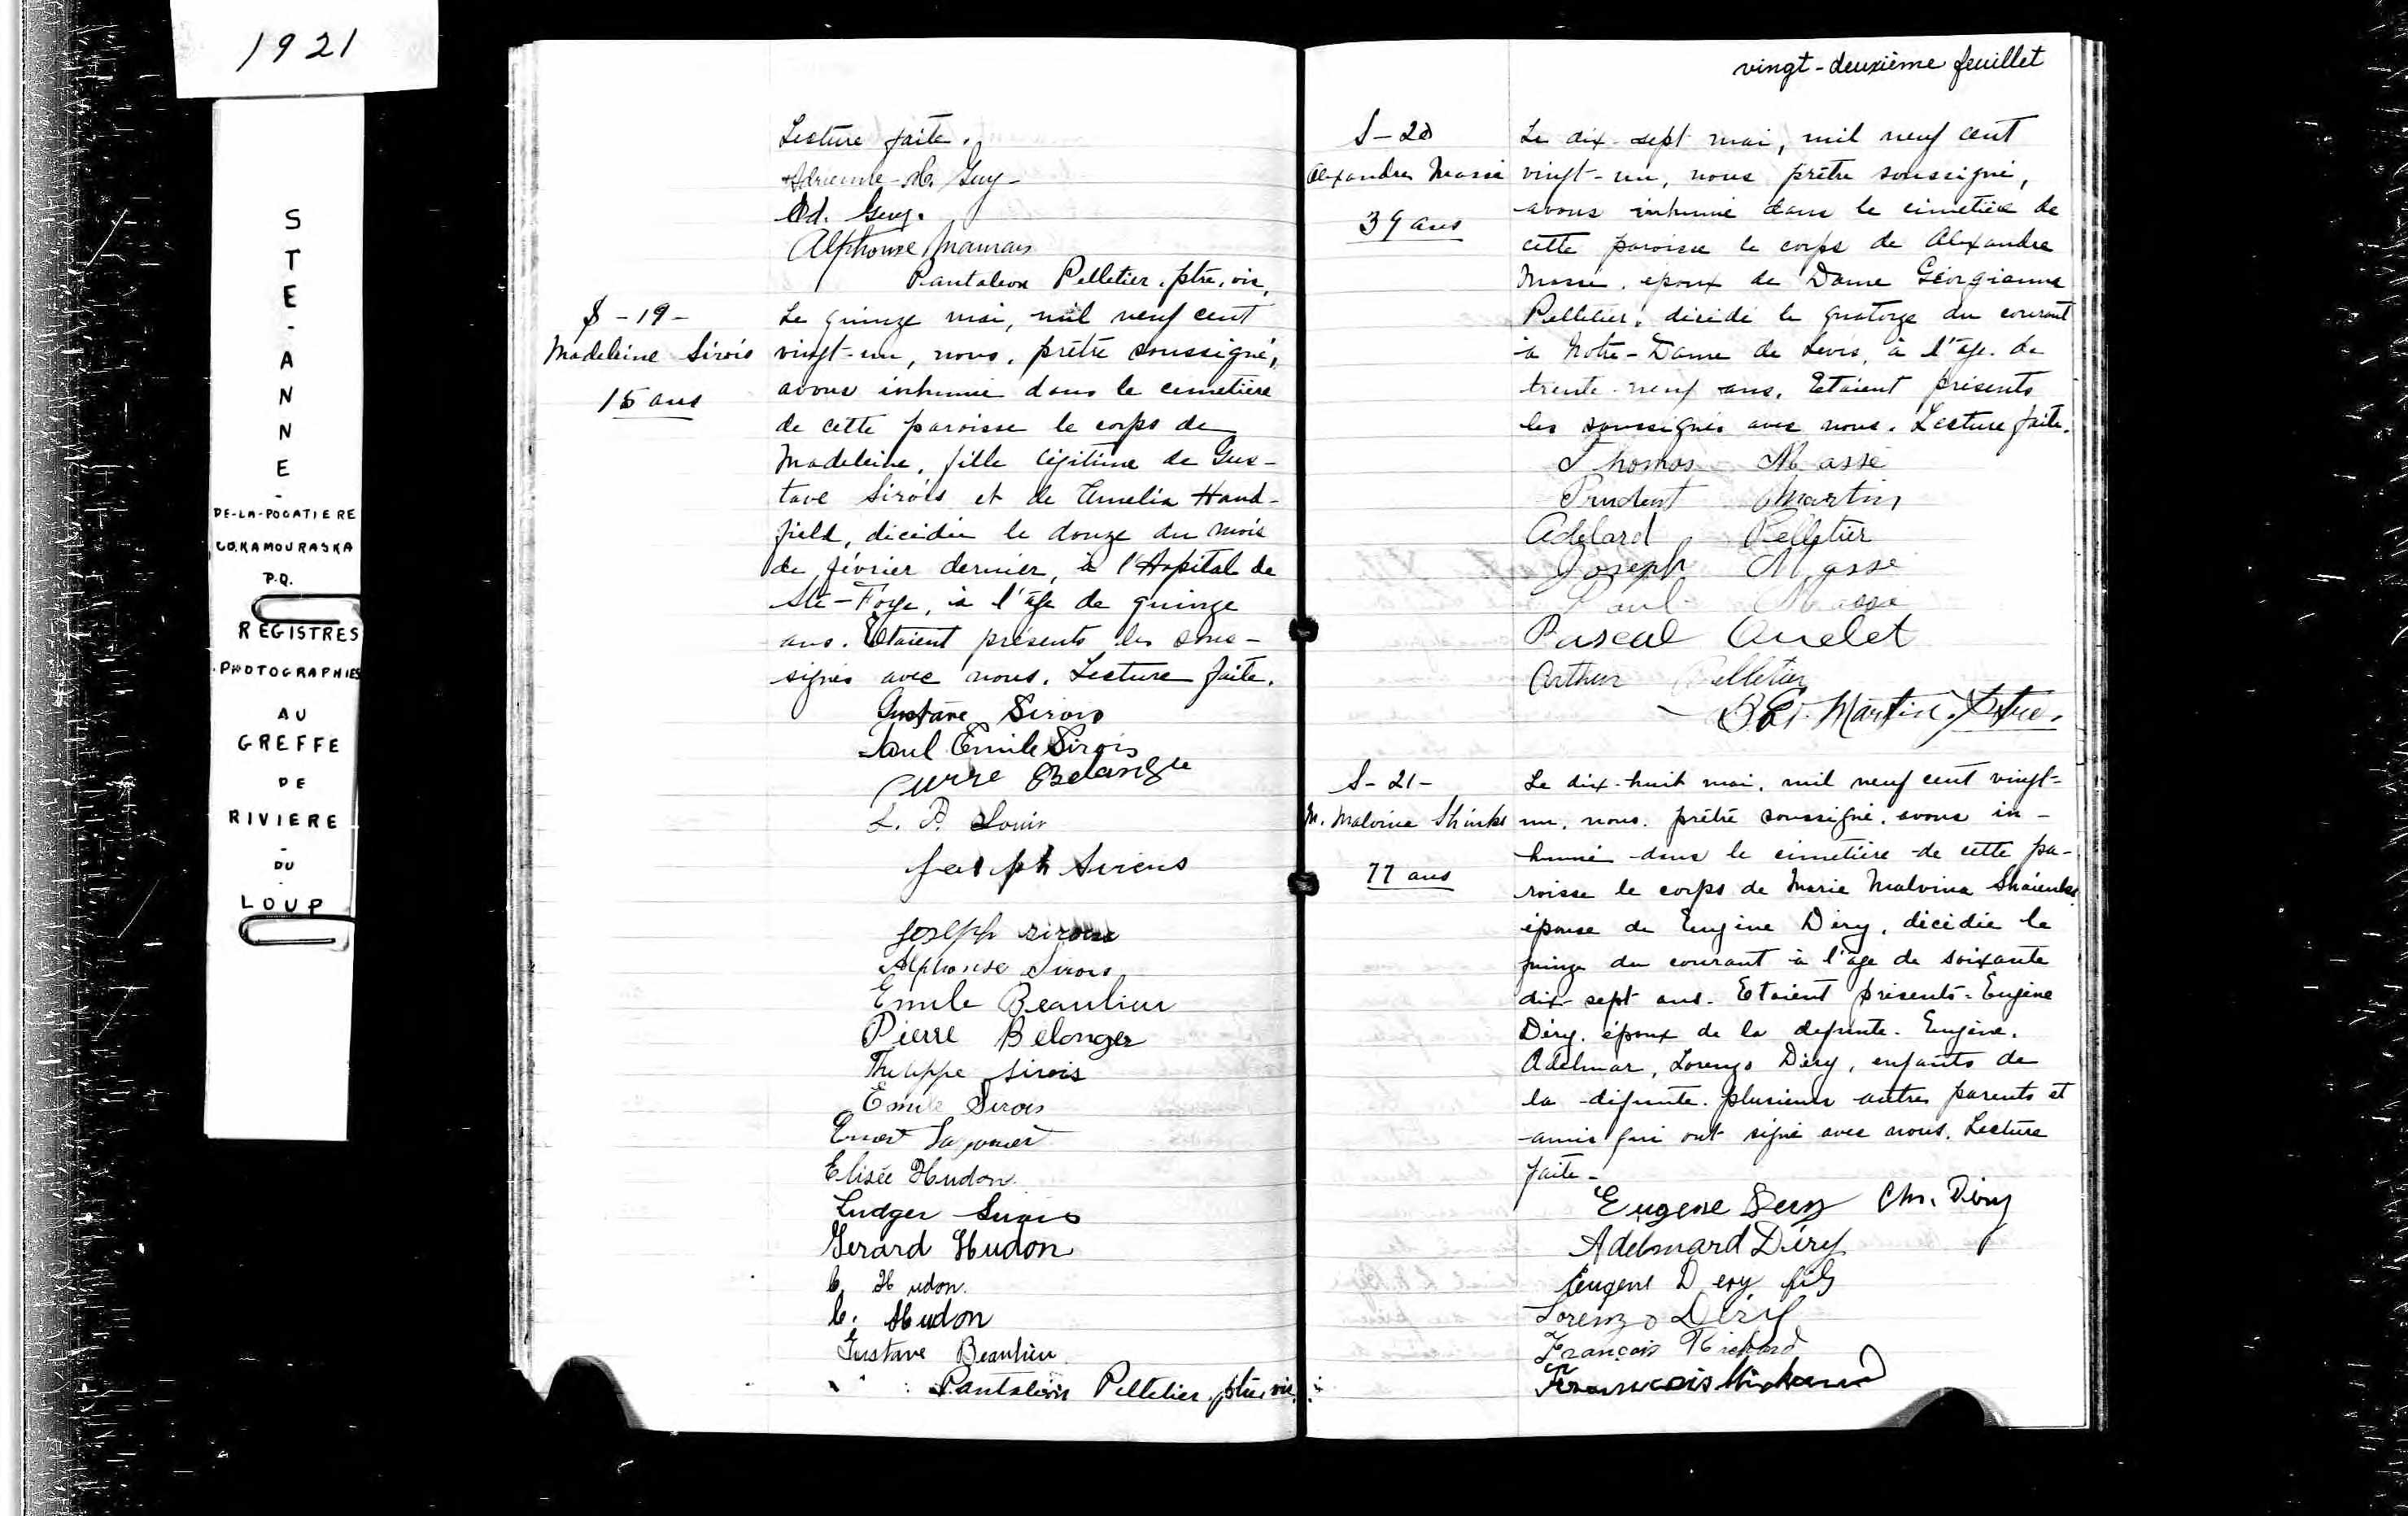 1921
STE-ANNE-
DE-LA-POCATIERE
CO.KAMOURASKA
P.Q.
REGISTRES
PHOTOGRAPHIES
AU
GREFFE
DE
RIVIERE
-
DU
-
LOUP
Lecture faite.
Ad. Guy.
Alphonse
Pantaleon Pelletier, ptre, vic.
S - 19 -
Madeleine Sirois
15 ans
Le quinze mai, mil neuf cent
vingt-un, nous, prêtre soussigné,
avons inhumé dans le cimetière
de cette paroisse le corps de
Madeleine, fille légitime de Gus-
tave Sirois et de Amelia Hand-
field, décédée le douze du mois
de février dernier, à l'Hopital de
Ste-Foye, à l'âge de quinze
ans. Etaient présents les sous-
signés avec nous. Lecture faite.
Gustave Sirois
Paul Emile Sirois
Pierre Belanger
L. P.
Joseph Sirois
Joseph Sirois
Alphonse Sirois
Emile Beaulieu
Pierre Belanger
Philippe Sirois
Emile Sirois
Elisée Hudon
Ludger Sirois
Gerard Hudon
C. Hudon
C. Hudon
Gustave Beaulieu
Pantaléon Pelletier, ptre, vic.
vingt-deuxième feuillet
S - 20
Alexandre Massé
39 ans
Le dix-sept mai, mil neuf cent
vingt-un, nous prêtre soussigné,
avons inhumé dans le cimetière de
cette paroisse le corps de Alexandre
Massé, époux de Dame Géorgianna
Pelletier, décédé le quatorze du courant
à Notre-Dame de Levis, à l'âge de
trente-neuf ans. Etaient présents
les soussignés avec nous. Lecture faite.
Thomas Massé
Prudent Martin
Adelard Pelletier
Joseph Massé
Paul Masse
Pascal Ouelet
Arthur Pelletier
Martin, Ptre.
S - 21 -
M. Malvina Shinks
77 ans
Le dix-huit mai, mil neuf cent vingt-
un, nous, prêtre soussigné, avons in-
humé dans le cimetière de cette pa-
roisse le corps de Marie Malvina
épouse de Eugène Déry, décédée le
quinze du courant à l'âge de soixante
dix-sept ans. Etaient présents - Eugène
Déry, époux de la defunte. Eugène,
Adelmar, Lorenzo Déry, enfants de
la défunte, plusieurs autres parents et
amis qui ont signé avec nous. Lecture
faite -
Eugene Dery Ch. Déry
Adelmard Déry
Eugene Dery fils
Lorenzo Déry
François Richard